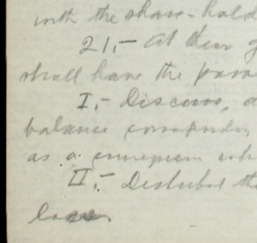 with the share-hold
21.- At their g
shall have the pow
I.- Discuss, a
balance corresponding
as a
II.- Distribut the